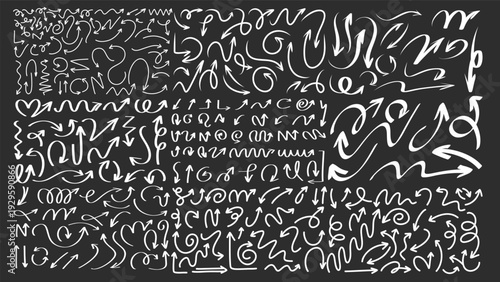 Adobe Stock | 1929590866